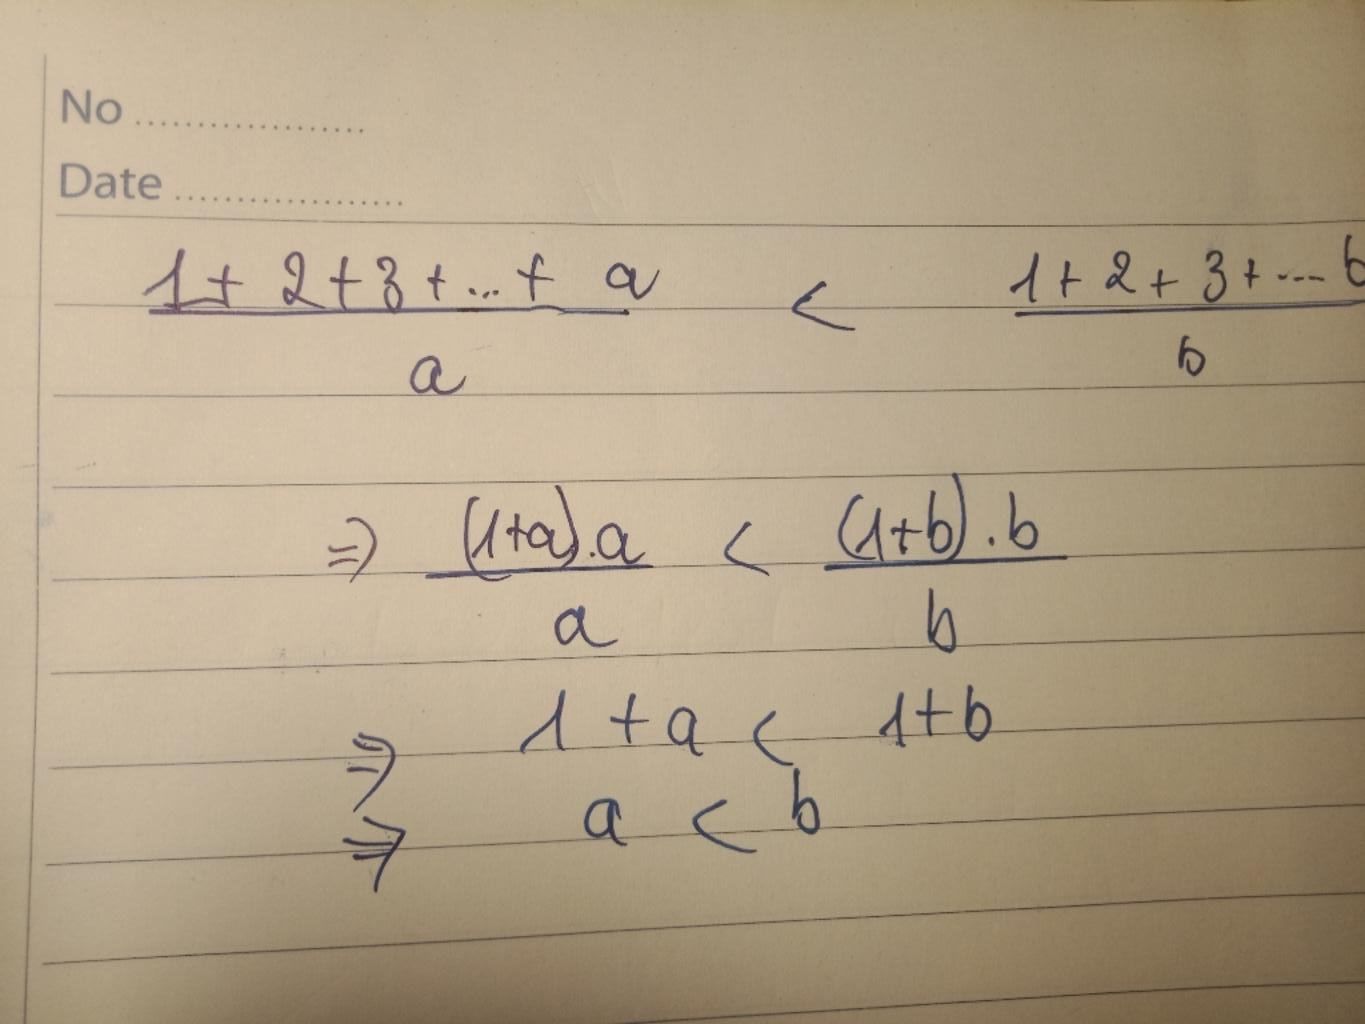 No ..................
Date ..................
1 + 2 + 3 + ... + a < 1 + 2 + 3 + .... b
a b
=> (1+a).a < (1+b).b
a b
=> 1 + a < 1+b
=> a < b